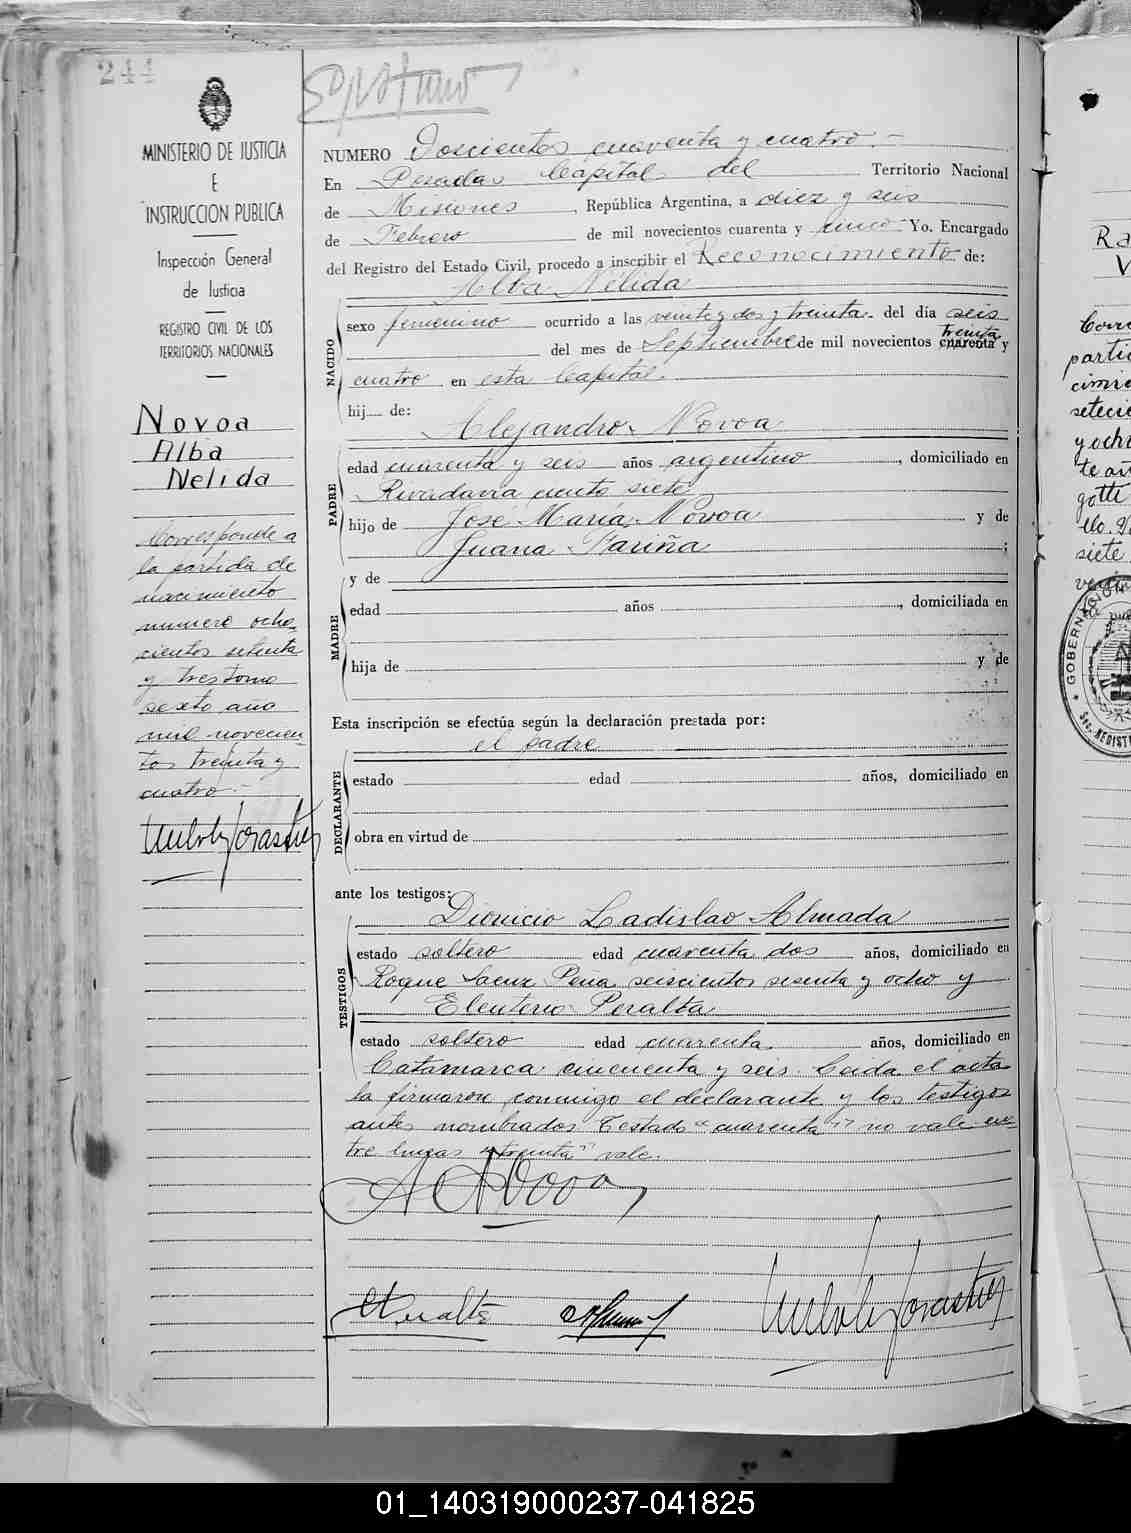 244
MINISTERIO DE JUSTICIA
E
INSTRUCCION PUBLICA
Inspección General
de Justicia
REGISTRO CIVIL DE LOS
TERRITORIOS NACIONALES
Novoa
Alba
Nelida
Corresponde a
la partida de
nacimiento
numero ocho
cientos setenta
y tres tomo
sexto año
mil novecien
tos treinta y
cuatro.-
NUMERO Doscientos cuarenta y cuatro.-
En Posadas Capital del Territorio Nacional
de Misiones, República Argentina, a diez y seis
de Febrero de mil novecientos cuarenta y cinco Yo. Encargado
del Registro del Estado Civil, procedo a inscribir el Reconocimiento de:
Alba Nélida
NACIDO
sexo femenino ocurrido a las veinte y dos y treinta. del día seis
treinta
del mes de Septiembre de mil novecientos cuarenta y
cuatro en esta Capital.
hij de:
Alejandro Novoa
PADRE
edad cuarenta y seis años argentino, domiciliado en
Rivadavia ciento siete
hijo de José María Novoa y de
Juana Fariña;
MADRE
y de
edad años, domiciliada en
hija de y de
Esta inscripción se efectúa según la declaración prestada por:
el padre
DECLARANTE
estado edad años, domiciliado en
obra en virtud de
ante los testigos:
TESTIGOS
Dionicio Ladislao Almada
estado soltero edad cuarenta dos años, domiciliado en
Roque Saenz Peña seiscientos sesenta y ocho y
Eleuterio Peralta
estado soltero edad cuarenta. años, domiciliado en
Catamarca cincuenta y seis. Leida el acta
la firmaron conmigo el declarante y los testigos
antes nombrados Testado "cuarenta" no vale en-
tre lineas "treinta" vale.
A Novoa
E Peralta
Ra
V
parti
cimie
setecie
y och
te añ
gotti
siete
GOBERNACION
REGIST
01_140319000237-041825